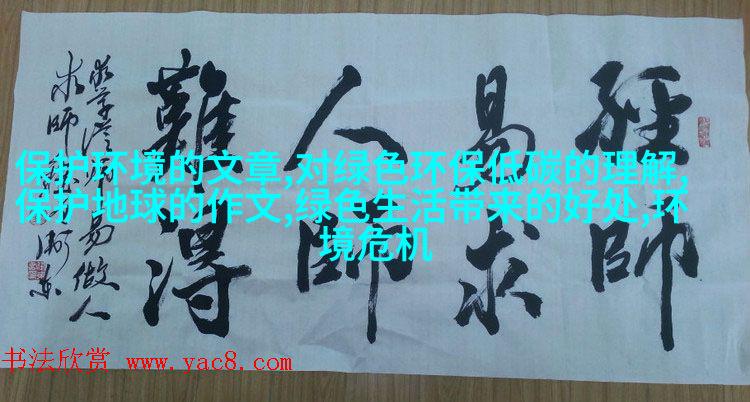 保护环境的文章,对绿色环保低碳的理解,
保护地球的作文,绿色生活带来的好处,环
境危机
經師
易求
人師
難得
书法欣赏 www.yac8.com